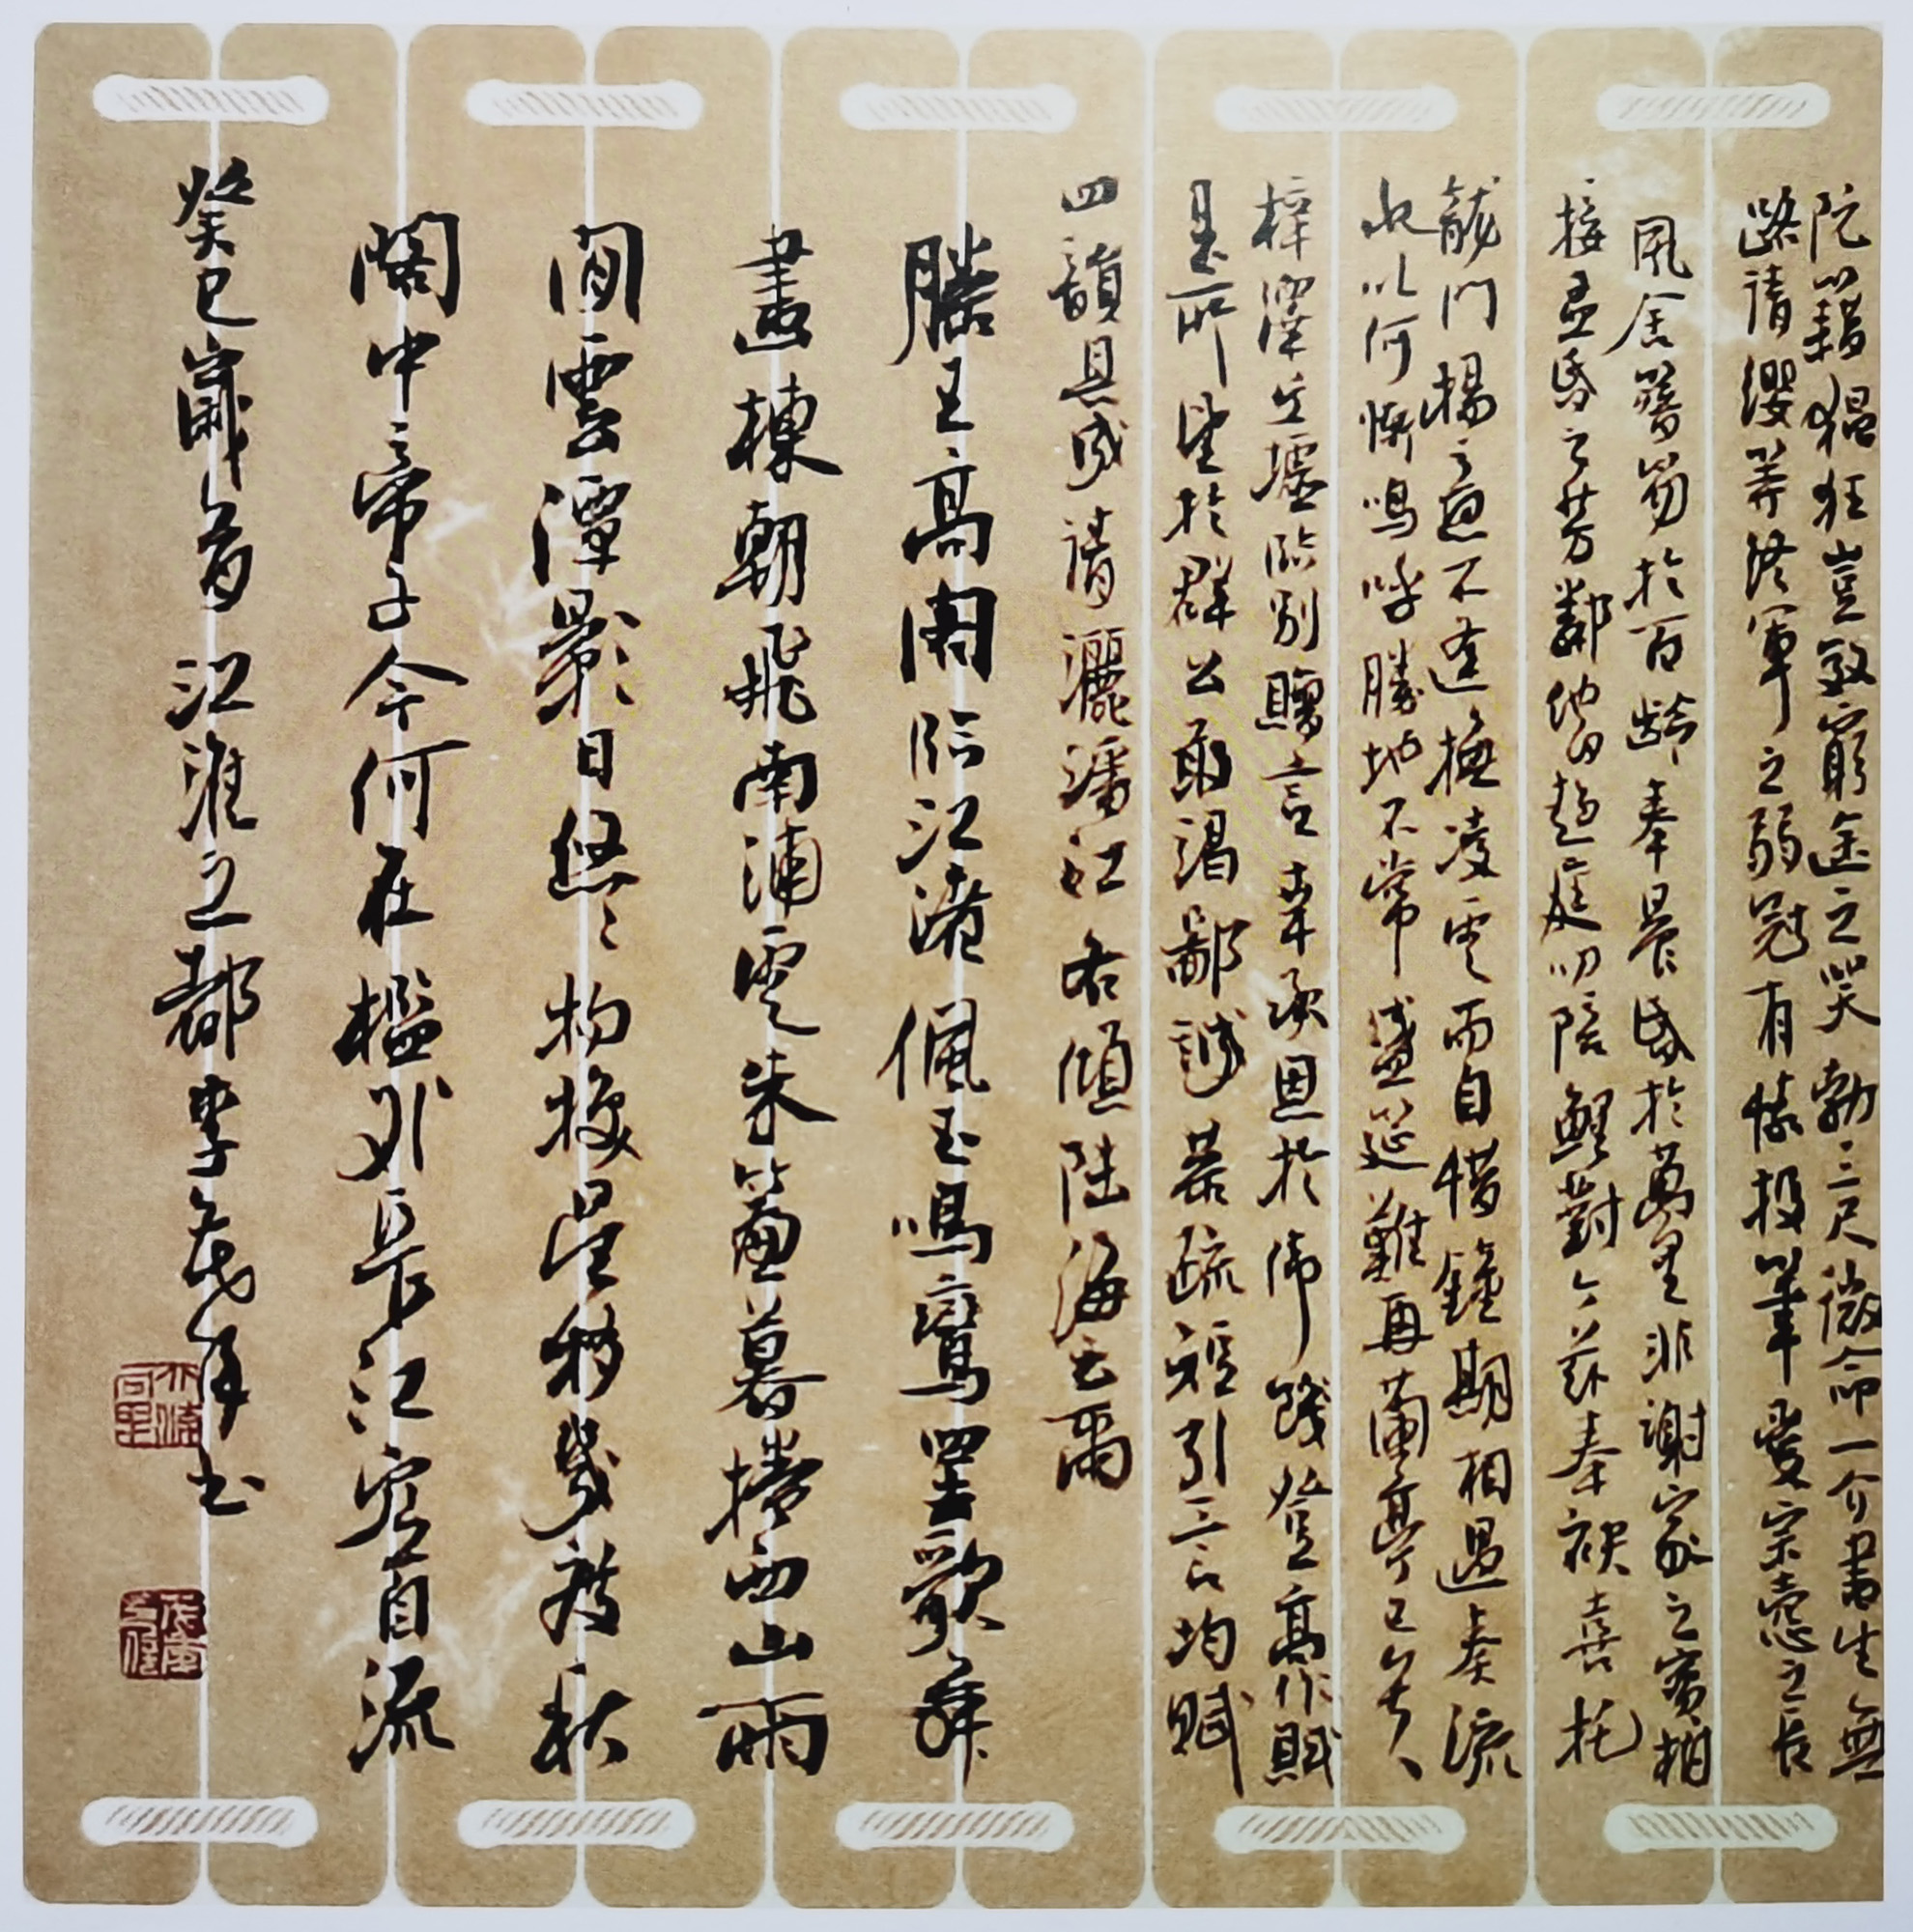 阮籍猖狂豈效窮途之哭勃三尺微命一介書生無
路請纓等終軍之弱冠有懷投筆愛宗慤之長
風舍簪笏於百齡奉晨昏於萬里非謝家之寶樹
接孟氏之芳鄰他日趨庭叨陪鯉對今茲奉袂喜托
龍門楊意不逢撫凌雲而自惜鍾期相遇奏流
水以何慚嗚呼勝地不常盛筵難再蘭亭已矣
梓澤丘墟臨別贈言幸承恩於偉餞登高作賦
是所望於群公敢竭鄙誠恭疏短引一言均賦
四韻具成請灑潘江各傾陸海云爾
滕王高閣臨江渚佩玉鳴鸞罷歌舞
畫棟朝飛南浦雲朱簾暮捲西山雨
閒雲潭影日悠々物換星移幾度秋
閣中帝子今何在檻外長江空自流
癸巳歲首江淮之都李茂年書